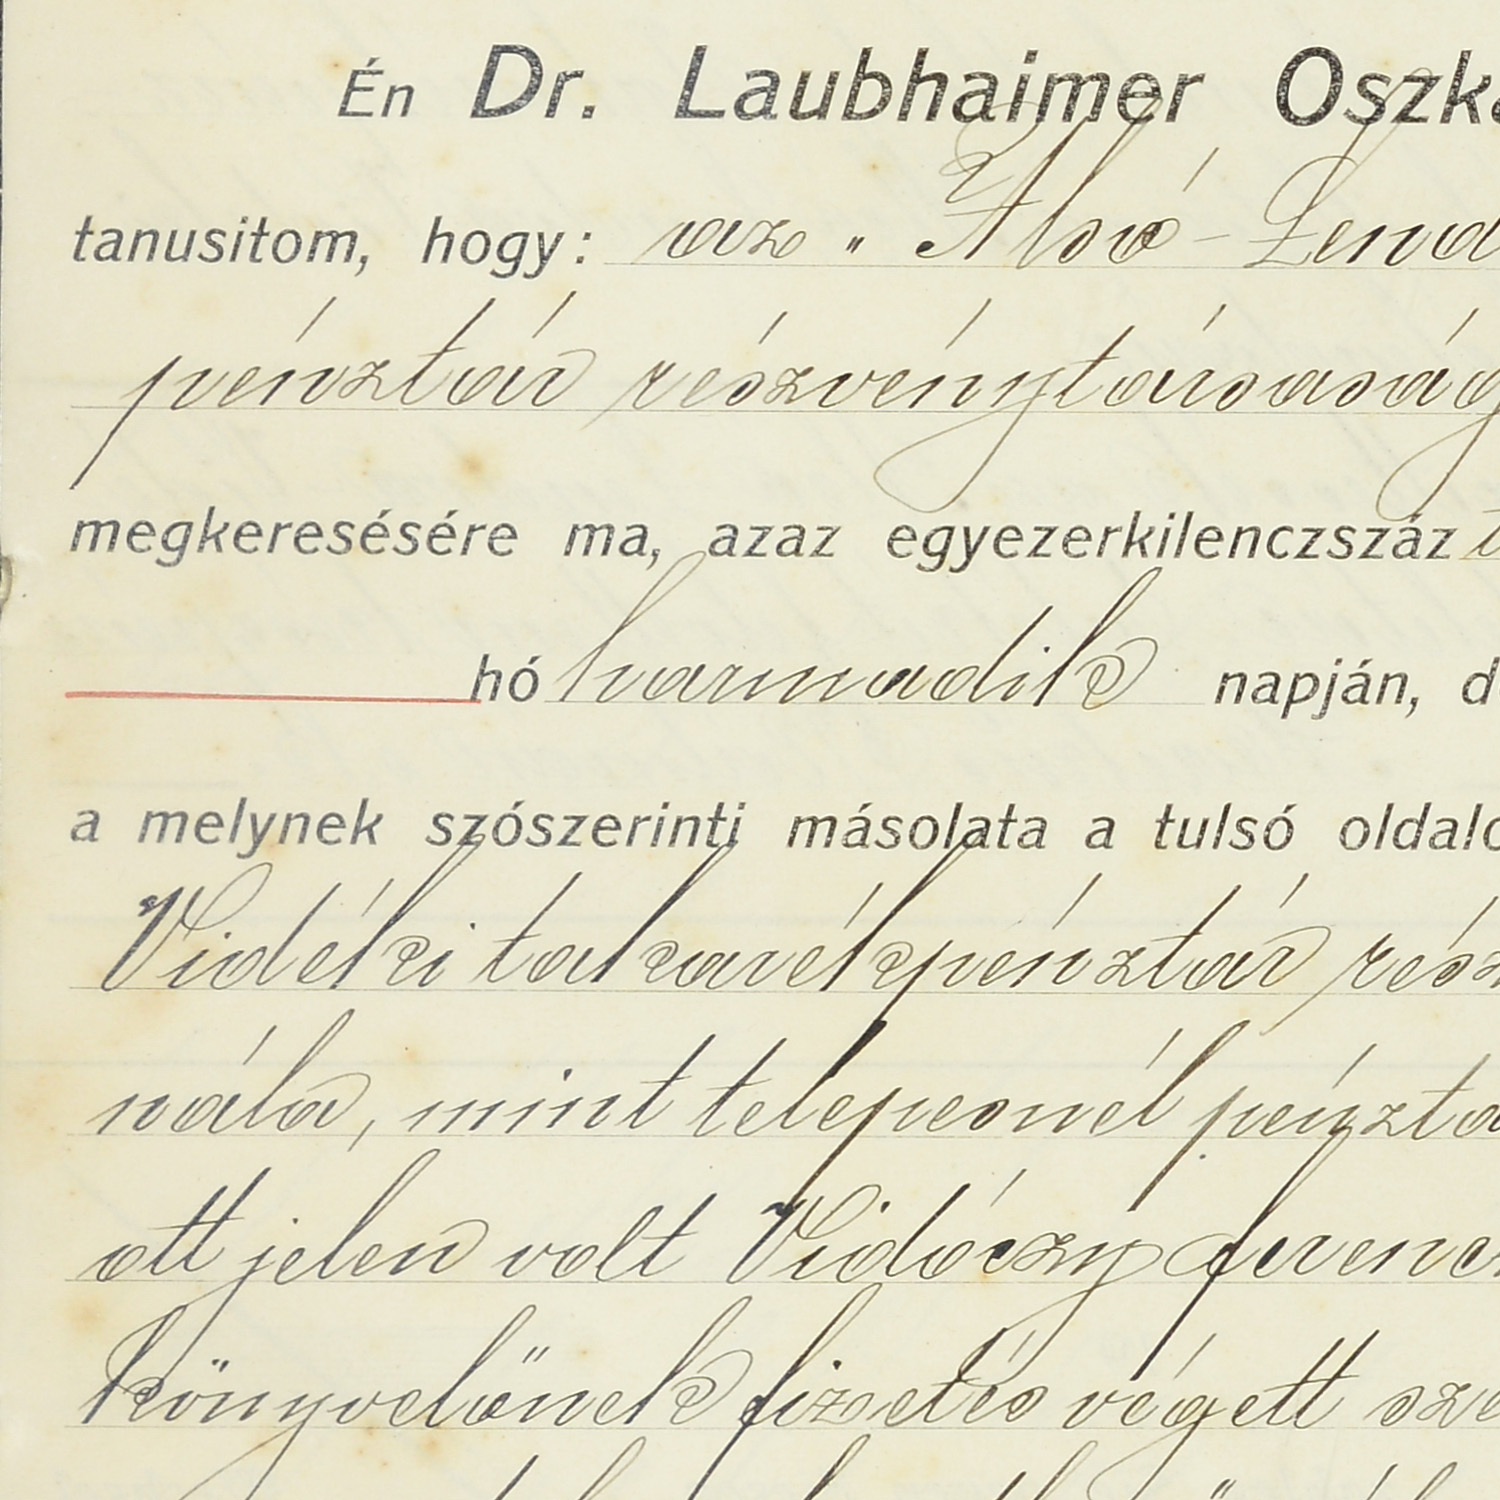 Én Dr. Laubhaimer Oszká
tanusitom, hogy: az „Alsó-Lend
pénztár részvénytársaság
megkeresésére ma, azaz egyezerkilenczszáz t
hó harmadik napján, d
a melynek szószerinti másolata a tulsó oldalo
Vidéki takarékpénztár rész
nála, mint telepesnél pénztá
ott jelen volt Vidóczy Ferenc
könyvelőnek fizetés végett sze